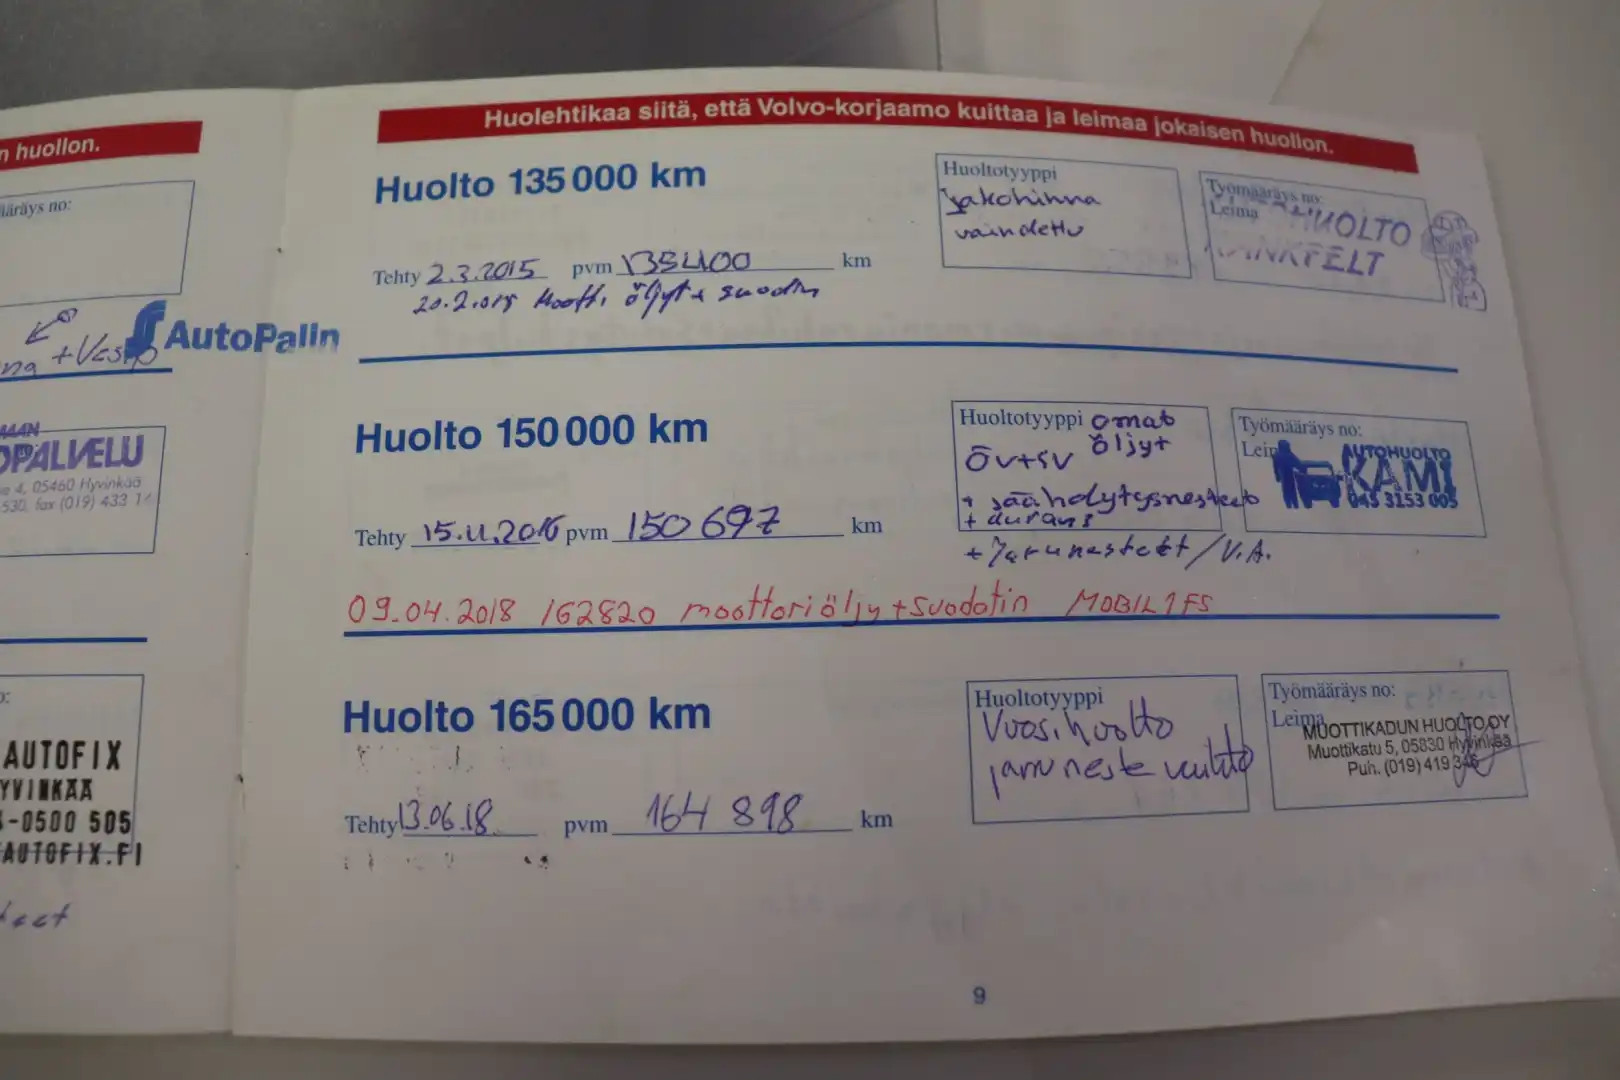 n huollon.
ääräys no:
na +Vesp
AutoPalin
OPALVELU
ie 4, 05460 Hyvinkää
530, fax (019) 433 14
o:
AUTOFIX
YVINKÄÄ
-0500 505
AUTOFIX.FI
Huolehtikaa siitä, että Volvo-korjaamo kuittaa ja leimaa jokaisen huollon.
Huolto 135 000 km
Huoltotyyppi
Jakohihna
vaihdettu
Työmääräys no:
Leima
HUOLTO
ANKFELT
Tehty 2.3.2015 pvm 135400 km
öljyt + suodin
Huolto 150 000 km
Huoltotyyppi omat
öljyt
öv+sv
+ jäähdytysnesteet
+ Jarunesteet / V.A.
Työmääräys no:
Leima
AUTOHUOLTO
KAMI
045 3153 005
Tehty 15.11.2016 pvm 150 697 km
09.04.2018 162820 moottoriöljy + suodatin MOBIL 1 FS
Huolto 165 000 km
Huoltotyyppi
Vuosihuolto
jarruneste vaihto
Työmääräys no:
Leima
MUOTTIKADUN HUOLTO OY
Muottikatu 5, 05830 Hyvinkää
Puh. (019) 419 346
Tehty 13.06.18 pvm 164 898 km
9